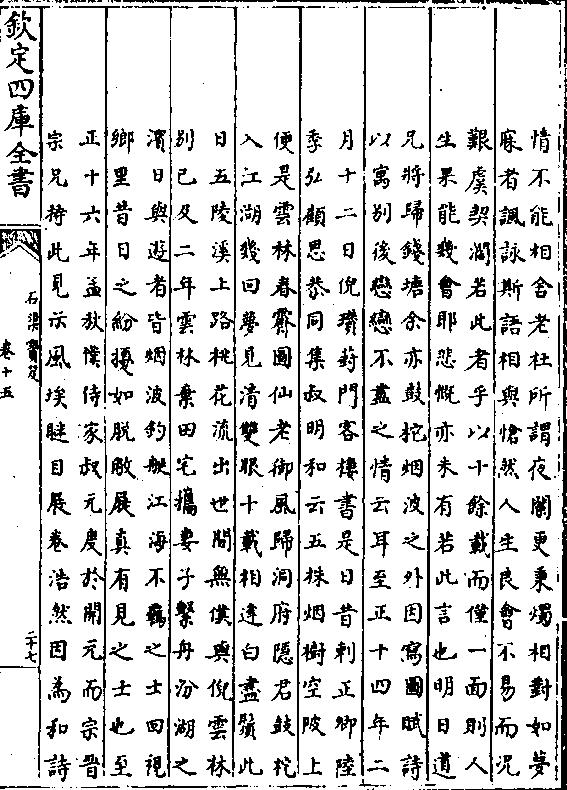 情不能相舍老杜所謂夜闌更秉燭相對如夢
寐者諷詠斯語相與愴然人生良會不易而況
艱虞契濶若此者乎以十餘載而僅一面則人
生果能幾會耶悲慨亦未有若此言也明日道
兄將歸錢塘余亦鼓柁烟波之外因寫圖賦詩
以寓别後戀戀不盡之情云耳至正十四年二
月十二日倪瓚葑門客樓書是日昔剌正卿陸
季弘顧思恭同集叔明和云五株烟樹空陂上
便是雲林春霽圖仙老御風歸洞府隠君鼓柁
入江湖幾回夢見清雙眼十載相逢白盡鬚此
日五陵溪上路桃花流出世間無僕與倪雲林
别已及二年雲林棄田宅攜妻子繫舟汾湖之
濵日與遊者皆烟波釣艇江海不羈之士回視
鄉里昔日之紛擾如脱敝屣真有見之士也至
正十六年孟秋僕侍家叔元慶於開元而宗晋
宗兄持此見示風埃瞇目展卷浩然因為和詩
欽定四庫全書
石渠寳笈
卷十五
二十七